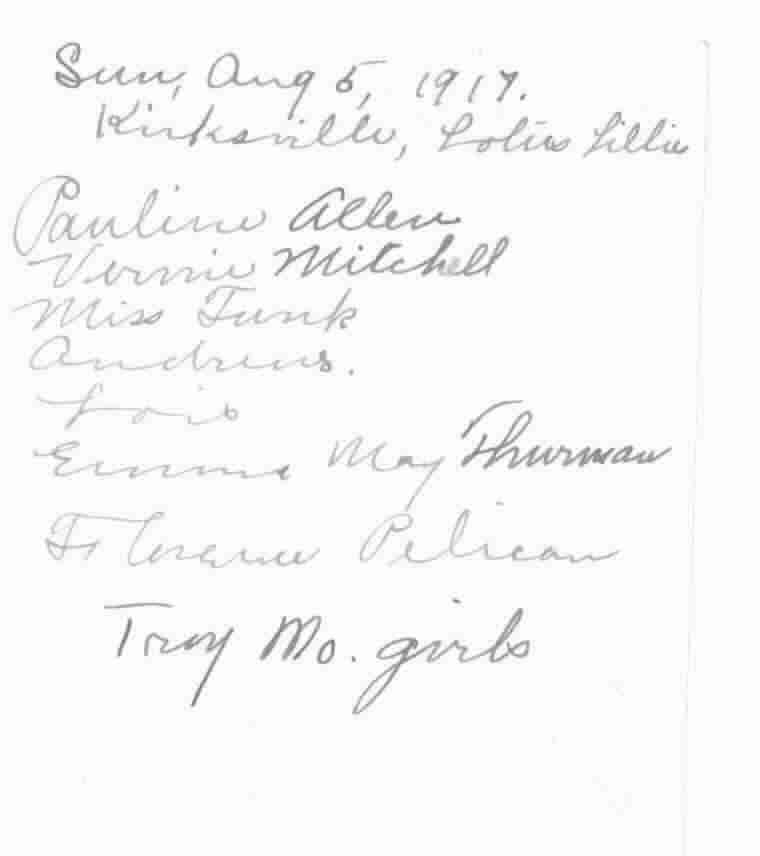 Sun, Aug 5, 1917.
Kirksville, Lotus Lillies
Pauline Allen
Vernie Mitchell
Miss Funk
Andrews.
Lois
Emma May Thurman
Florence Pelican
Troy Mo. girls